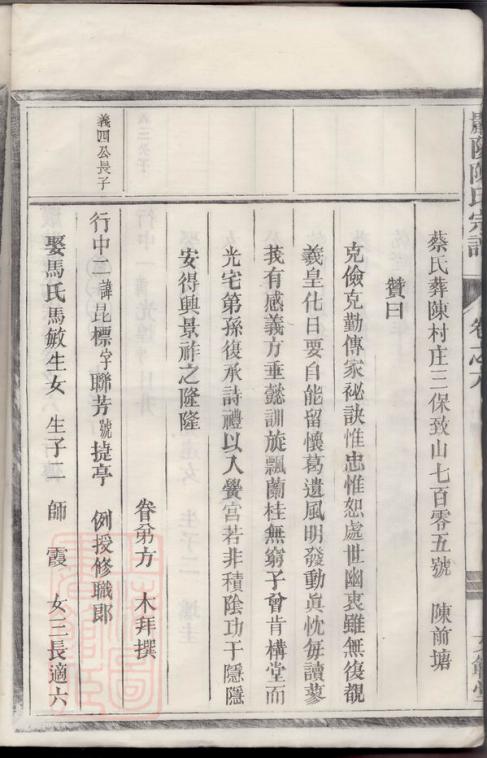 陳氏宗譜
卷之六
蔡氏葬陳村庄三保致山七百零五號 陳前塘
贊曰
克儉克勤傳家祕訣惟忠惟恕處世幽衷雖無復覩
義皇化日要自能留懷葛遺風明發動眞忱每讀蓼
莪有感義方垂懿訓旋飄蘭桂無窮子曾肯構堂而
光宅第孫復承詩禮以入黌宮若非積陰功于隱隱
安得興景祚之隆隆
眷弟方 木拜撰
義四公長子
行中二諱昆標字聯芳號㨗亭 例授修職郎
娶馬氏馬敏生女 生子一 師霞 女三長適六